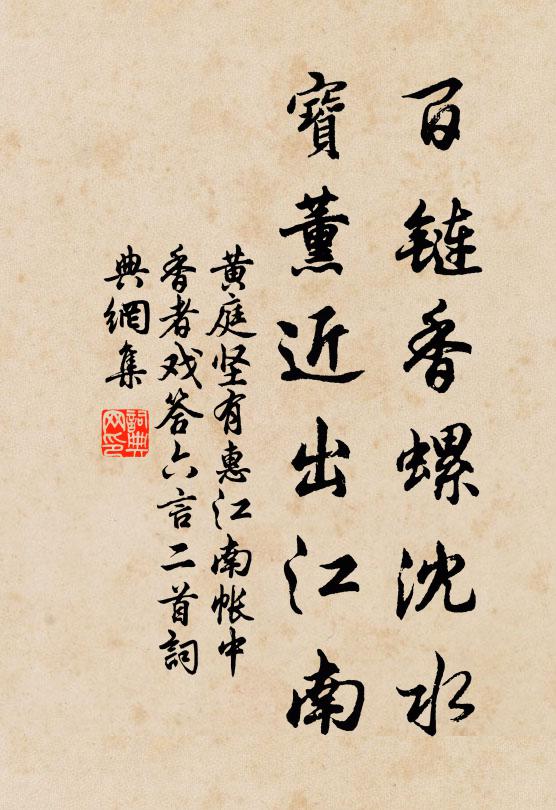 百鏈香螺沈水
寶薰近出江南
黄庭坚有惠江南帐中
香者戏答六言二首詞
典網集
詞典
网印